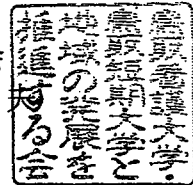 鳥取看護大学・
鳥取短期大学と
地域の発展を
推進する会